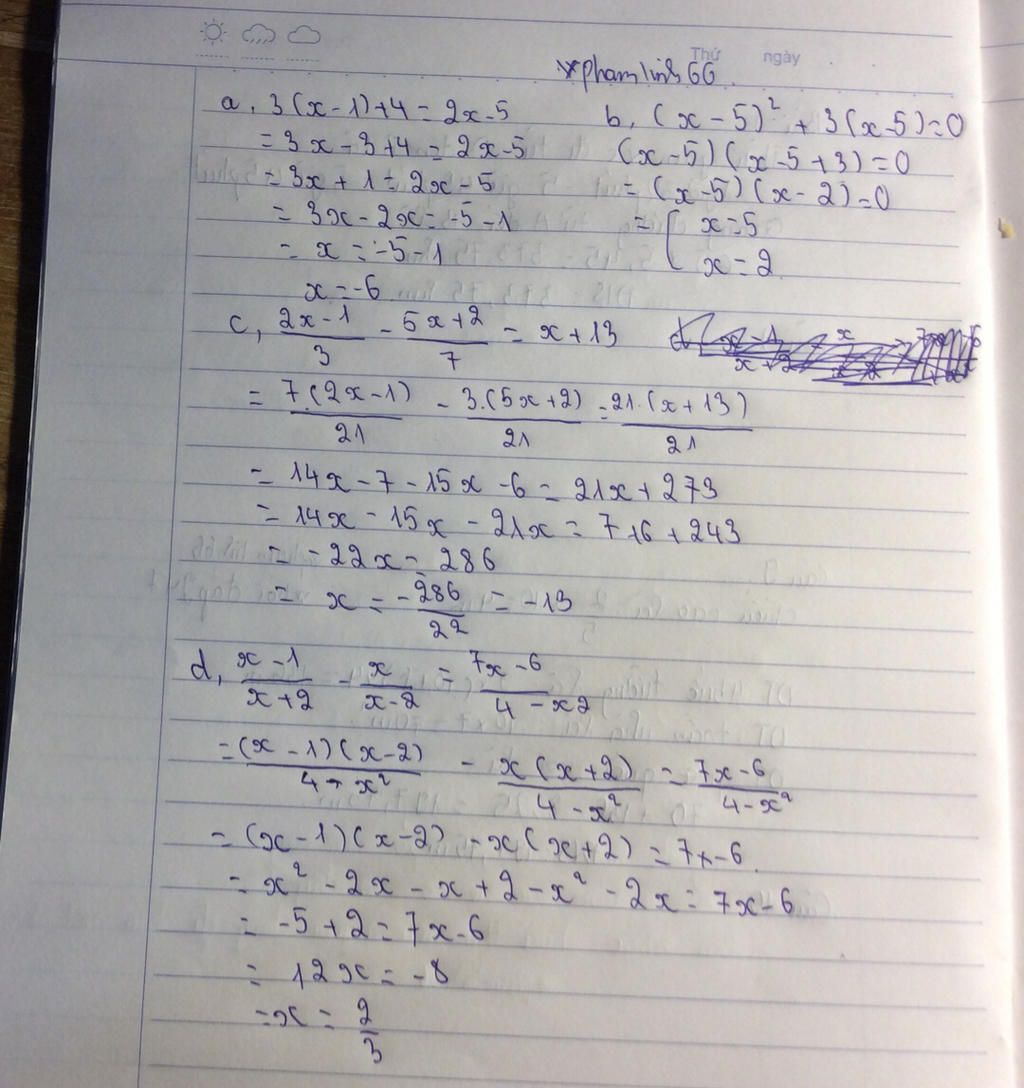 Thứ ngày
*phamlinh66
a, 3(x-1)+4 = 2x-5
= 3x-3+4 = 2x-5
= 3x+1 = 2x-5
= 3x-2x = -5-1
= x = -5-1
x = -6
b, (x-5)² + 3(x-5)=0
(x-5)(x-5+3)=0
= (x-5)(x-2)=0
= [ x=5
x=2
c, (2x-1)/3 - (5x+2)/7 = x+13
= 7.(2x-1)/21 - 3.(5x+2)/21 = 21.(x+13)/21
= 14x-7-15x-6 = 21x+273
= 14x-15x-21x = 7+6+243
= -22x = 286
= x = -286/22 = -13
d, (x-1)/(x+2) - x/(x-2) = (7x-6)/(4-x2)
= (x-1)(x-2)/(4-x²) - x(x+2)/(4-x²) = (7x-6)/(4-x²)
= (x-1)(x-2) - x(x+2) = 7x-6
= x²-2x-x+2-x²-2x = 7x-6
= -5+2 = 7x-6
= 12x = -8
= x = 2/3